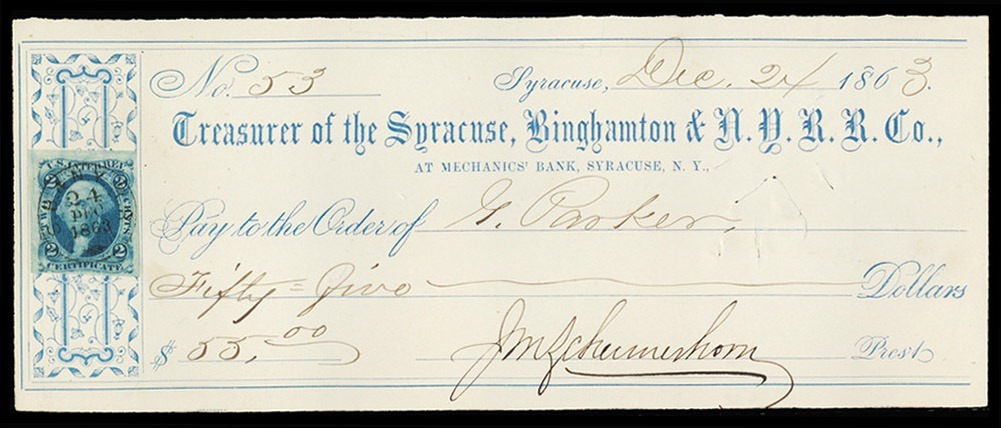 No. 53 Syracuse, Dec. 24 1863.
Treasurer of the Syracuse, Binghamton & N. Y. R. R. Co.,
AT MECHANICS' BANK, SYRACUSE, N. Y.,
Pay to the Order of G. Parker,
Fifty = Five Dollars
$ 55.00
J M Schermerhorn Prest
U.S. INTER. REV.
TWO CENTS
24
DEC
1863
2 2
CERTIFICATE